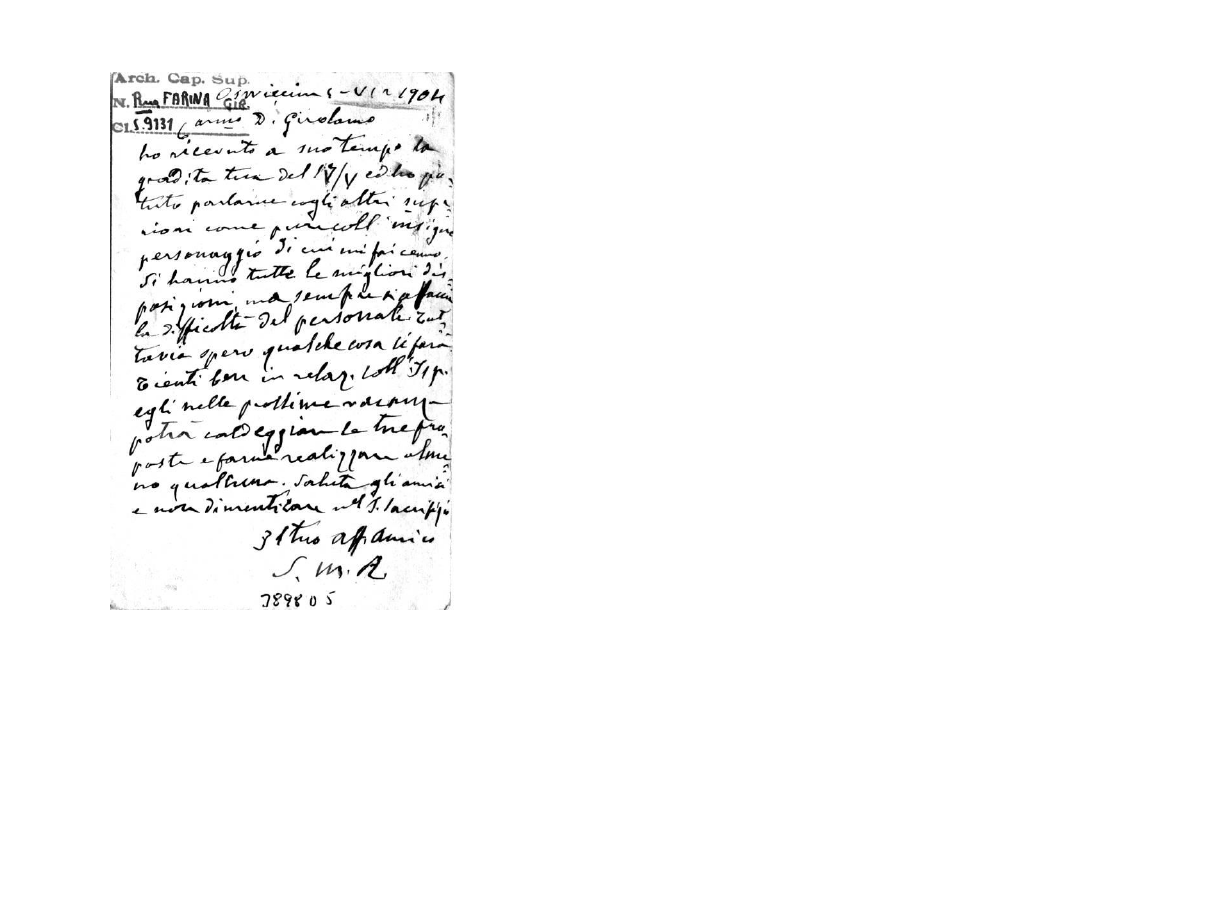 Arch. Cap. Sup.
N. Rua FARINA GIR.
Cl. S. 9131
Oswiecim 5-VI 1904
Carmo D. Girolamo
ho ricevuto a suo tempo la
gradita tua del 17/V ed ho po-
tuto parlarne cogli altri supe-
riori come pure coll' insigne
personaggio di cui mi fai cenno.
Si hanno tutte le migliori dis-
posizioni, ma sempre si affaccia
la difficoltà del personale. Tut-
tavia spero qualche cosa si farà.
Tienti ben in relaz. coll' Isp.
egli nelle prossime vacanze
potrà caldeggiare le tue pro-
poste e farne realizzare alme-
no qualcuna. Saluta gli amici
e non dimenticare nel S. Sacrifizio
Il tuo aff amico
S. M. R.
3898 D 5